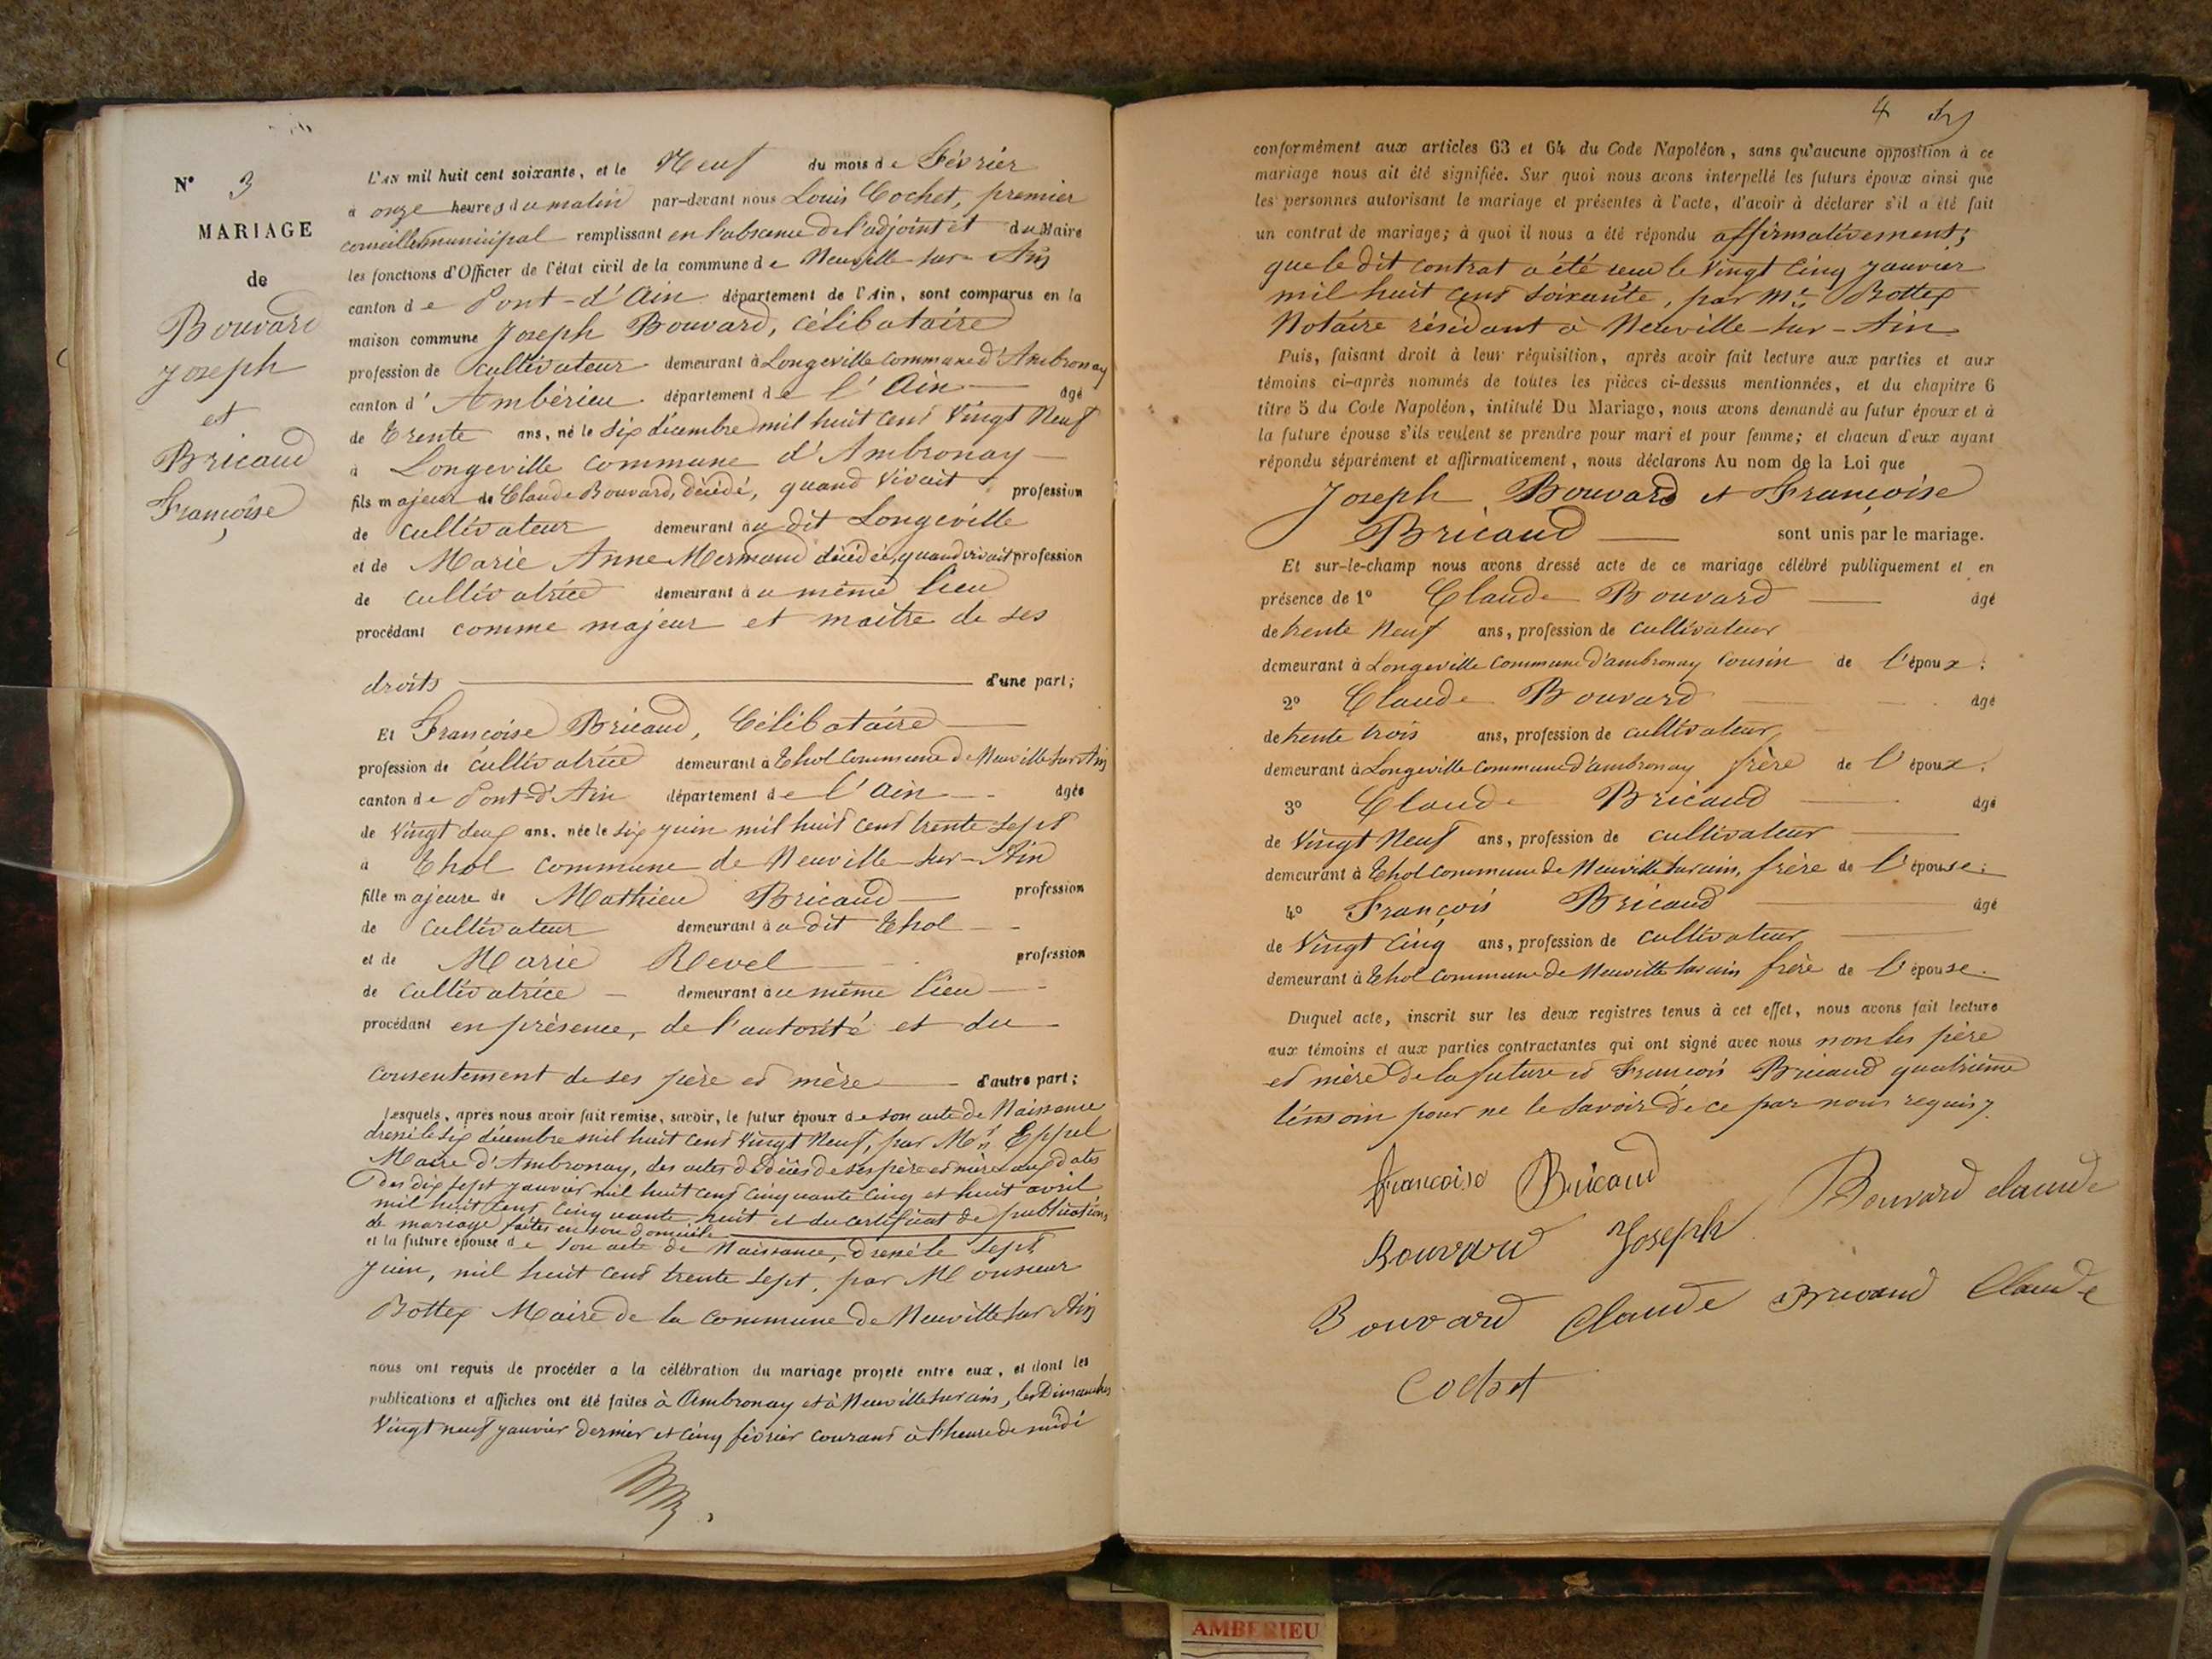 N° 3
MARIAGE
de
Bouvard
Joseph
et
Bricaud
Françoise
L'AN mil huit cent soixante, et le Neuf du mois de Février
à onze heures du matin par-devant nous Louis Cochet, premier
conseiller municipal remplissant en l'absence de l'adjoint et du Maire
les fonctions d'Officier de l'état civil de la commune de Neuville-sur-Ain
canton de Pont-d'Ain département de l'Ain, sont comparus en la
maison commune Joseph Bouvard, célibataire
profession de cultivateur demeurant à Longeville commune d'Ambronay
canton d'Ambérieu département de l'Ain âgé
de trente ans, né le six décembre mil huit cent vingt neuf
à Longeville commune d'Ambronay
fils majeur de Claude Bouvard, décédé, quand vivait profession
de cultivateur demeurant au dit Longeville
et de Marie Anne Mermand décédée, quand vivait profession
de cultivatrice demeurant au même lieu
procédant comme majeur et maître de ses
droits d'une part;
Et Françoise Bricaud, célibataire
profession de cultivatrice demeurant à Thol commune de Neuville sur Ain
canton de Pont-d'Ain département de l'Ain âgée
de vingt deux ans, née le six juin mil huit cent trente sept
à Thol commune de Neuville-sur-Ain
fille majeure de Mathieu Bricaud profession
de cultivateur demeurant au dit Thol
et de Marie Revel profession
de cultivatrice demeurant au même lieu
procédant en présence, de l'autorité et du
consentement de ses père et mère d'autre part;
Lesquels, après nous avoir fait remise, savoir, le futur époux de son acte de Naissance
dressé le six décembre mil huit cent vingt neuf, par Mr Eppel
Maire d'Ambronay, des actes de décès de ses père et mère aux dates
des dix sept janvier mil huit cent cinquante cinq et huit avril
mil huit cent cinquante huit et du certificat de publications
de mariage faites en son domicile
et la future épouse de son acte de Naissance, dressé le sept
juin, mil huit cent trente sept, par Monsieur
Bottex Maire de la commune de Neuville sur Ain
nous ont requis de procéder à la célébration du mariage projeté entre eux, et dont les
publications et affiches ont été faites à Ambronay et à Neuville sur ain, les Dimanches
vingt neuf janvier dernier et cinq février courant à l'heure de midi
4
conformément aux articles 63 et 64 du Code Napoléon, sans qu'aucune opposition à ce
mariage nous ait été signifiée. Sur quoi nous avons interpellé les futurs époux ainsi que
les personnes autorisant le mariage et présentes à l'acte, d'avoir à déclarer s'il a été fait
un contrat de mariage; à quoi il nous a été répondu affirmativement;
que le dit contrat a été reçu le vingt cinq janvier
mil huit cent soixante, par Me Bottex
Notaire résidant à Neuville-sur-Ain
Puis, faisant droit à leur réquisition, après avoir fait lecture aux parties et aux
témoins ci-après nommés de toutes les pièces ci-dessus mentionnées, et du chapitre 6
titre 5 du Code Napoléon, intitulé Du Mariage, nous avons demandé au futur époux et à
la future épouse s'ils veulent se prendre pour mari et pour femme; et chacun d'eux ayant
répondu séparément et affirmativement, nous déclarons Au nom de la Loi que
Joseph Bouvard et Françoise
Bricaud sont unis par le mariage.
Et sur-le-champ nous avons dressé acte de ce mariage célébré publiquement et en
présence de 1° Claude Bouvard âgé
de trente neuf ans, profession de cultivateur
demeurant à Longeville commune d'ambronay cousin de l'époux;
2° Claude Bouvard âgé
de trente trois ans, profession de cultivateur
demeurant à Longeville commune d'ambronay frère de l'époux;
3° Claude Bricaud âgé
de vingt neuf ans, profession de cultivateur
demeurant à Thol commune de Neuville sur ain, frère de l'épouse;
4° François Bricaud âgé
de vingt cinq ans, profession de cultivateur
demeurant à Thol commune de Neuville sur ain frère de l'épouse.
Duquel acte, inscrit sur les deux registres tenus à cet effet, nous avons fait lecture
aux témoins et aux parties contractantes qui ont signé avec nous non les père
et mère de la future et François Bricaud quatrième
témoin pour ne le savoir de ce par nous requis.
françoise Bricaud
Bouvard claude
Bouvard Joseph
Bouvard Claude Bricaud Claude
Cochet
AMBERIEU